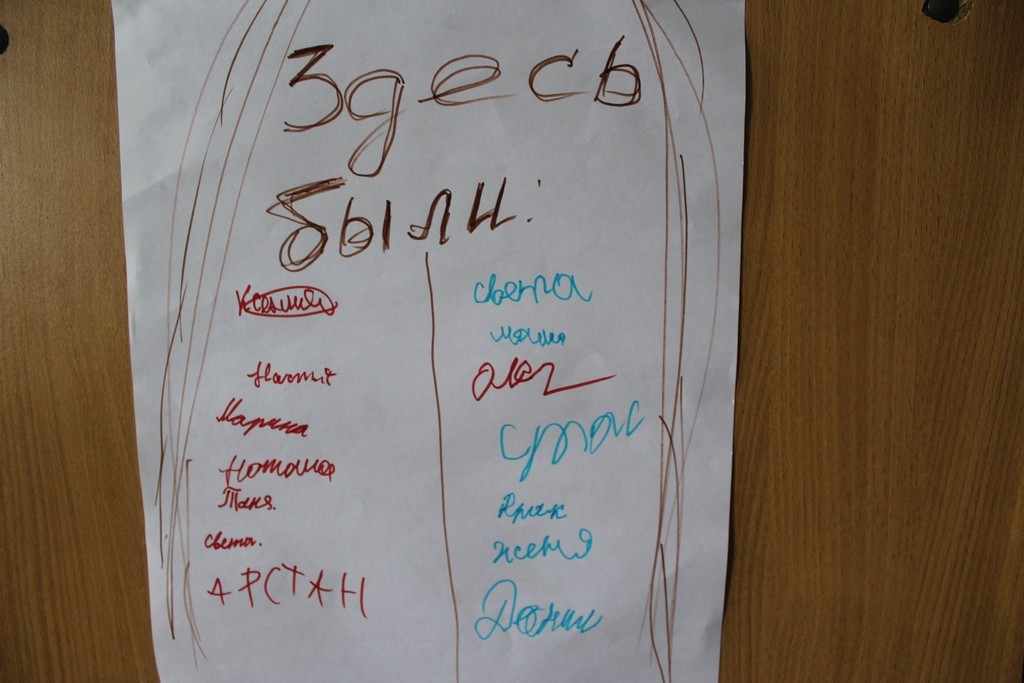 Здесь
были:
Ксения
Настя
Марина
Наташа
Таня.
света.
АРСТАН
света
маша
стас
женя
Данил